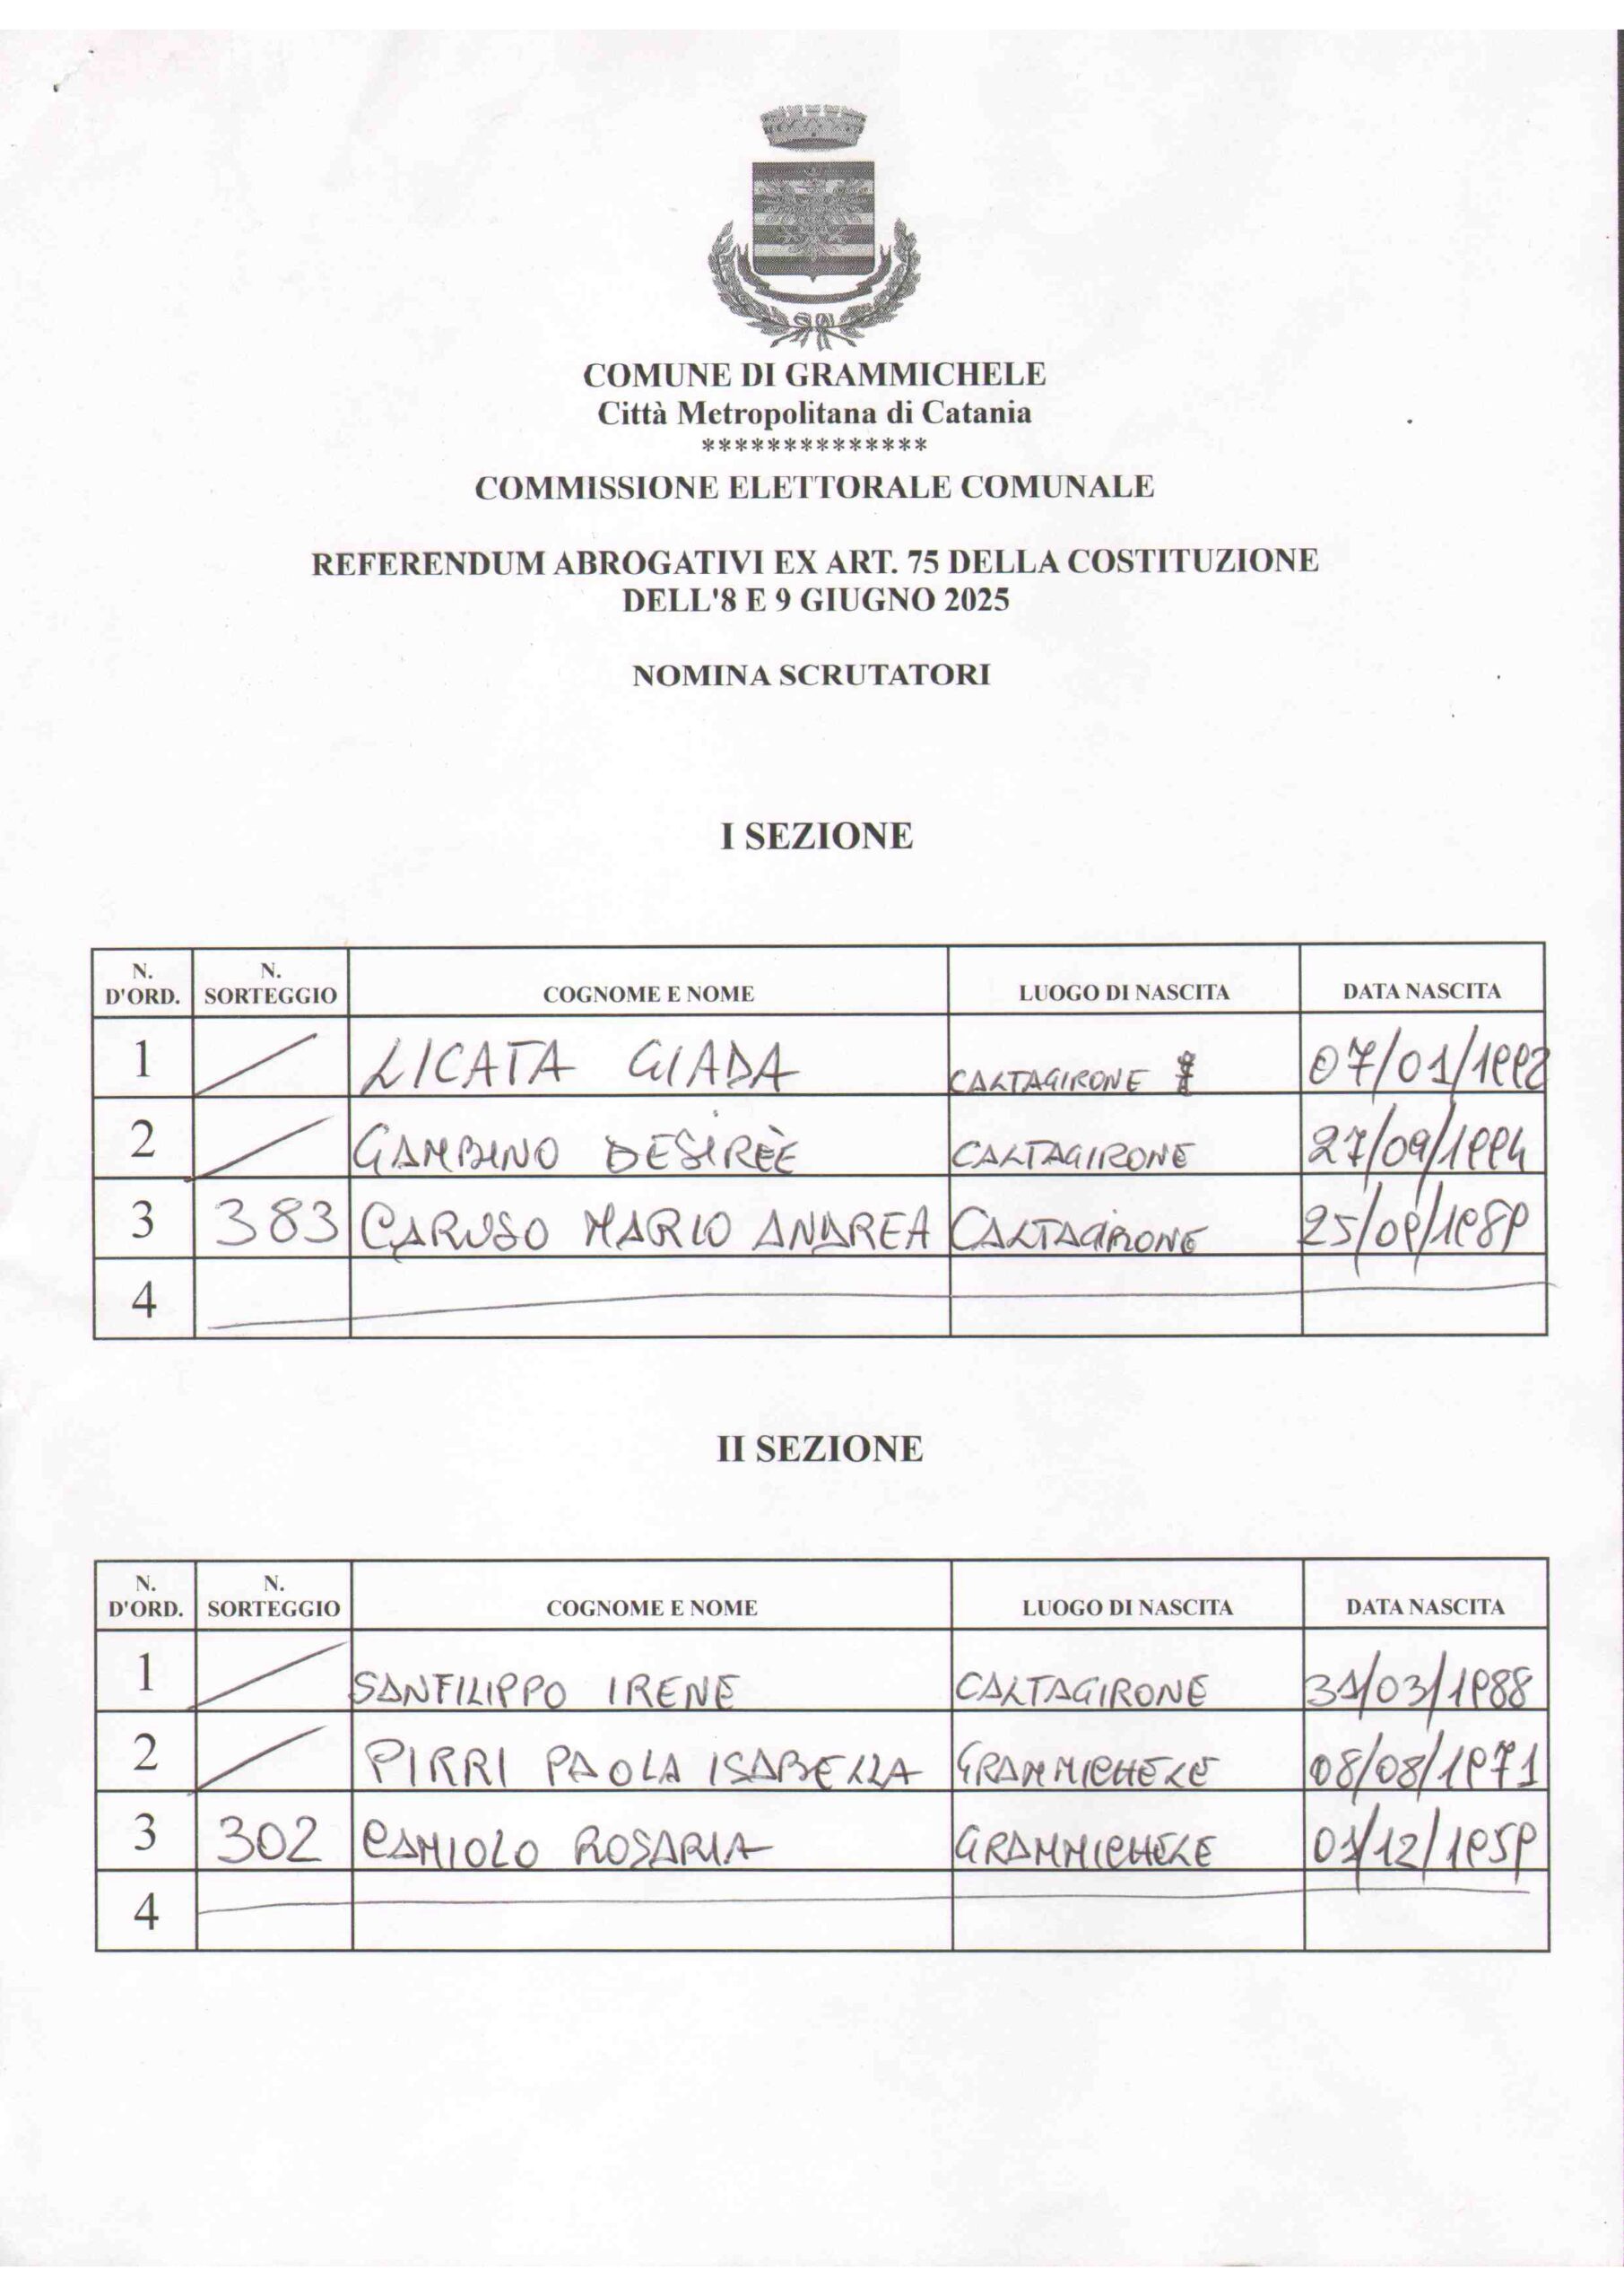 COMUNE DI GRAMMICHELE
Città Metropolitana di Catania
**************
COMMISSIONE ELETTORALE COMUNALE
REFERENDUM ABROGATIVI EX ART. 75 DELLA COSTITUZIONE
DELL'8 E 9 GIUGNO 2025
NOMINA SCRUTATORI
I SEZIONE
N. D'ORD. N. SORTEGGIO COGNOME E NOME LUOGO DI NASCITA DATA NASCITA
1 / LICATA GIADA CALTAGIRONE 07/01/1992
2 / GAMBINO DESIRÈE CALTAGIRONE 27/09/1994
3 383 CARUSO MARIO ANDREA CALTAGIRONE 25/09/1989
4
II SEZIONE
N. D'ORD. N. SORTEGGIO COGNOME E NOME LUOGO DI NASCITA DATA NASCITA
1 / SANFILIPPO IRENE CALTAGIRONE 31/03/1988
2 / PIRRI PAOLA ISABELLA GRAMMICHELE 08/08/1971
3 302 CAMIOLO ROSARIA GRAMMICHELE 01/12/1959
4